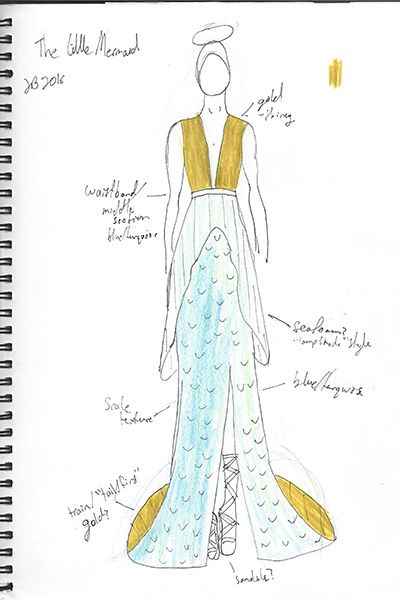 The Little Mermaid
2016
gold
waistband
middle
section
blue/turquoise
seafoam?
"lampshade" style
blue/turquoise
Scale
texture
train/"tail/fins"
gold?
sandals?